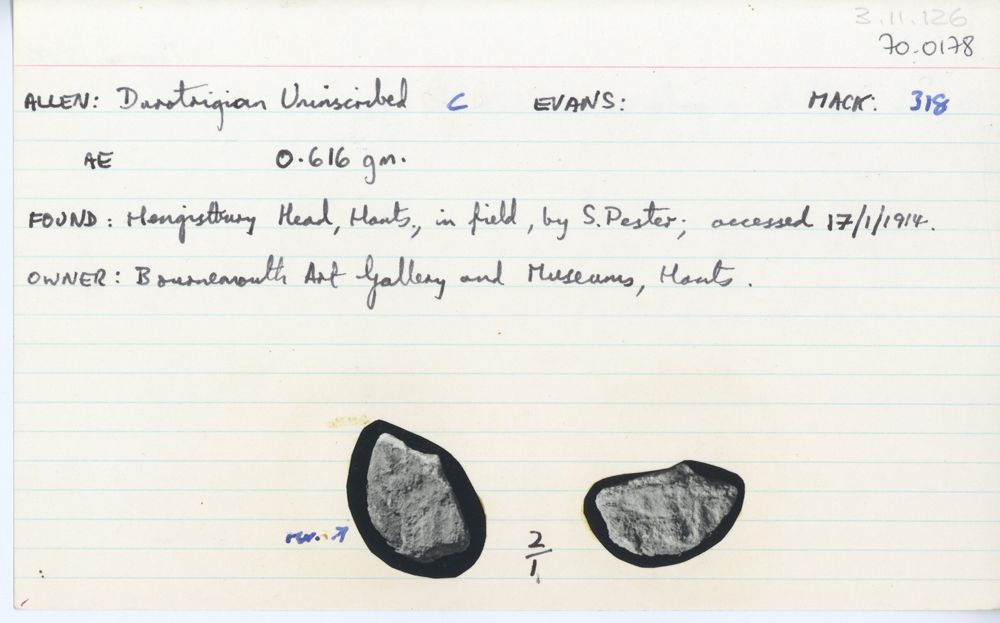 3.11.126
70.0178
ALLEN: Durotrigian Uninscribed C EVANS: MACK: 318
AE 0.616 gm.
FOUND: Hengistbury Head, Hants., in field, by S. Pester; accessed 17/1/1914.
OWNER: Bournemouth Art Gallery and Museums, Hants.
↗
2/1